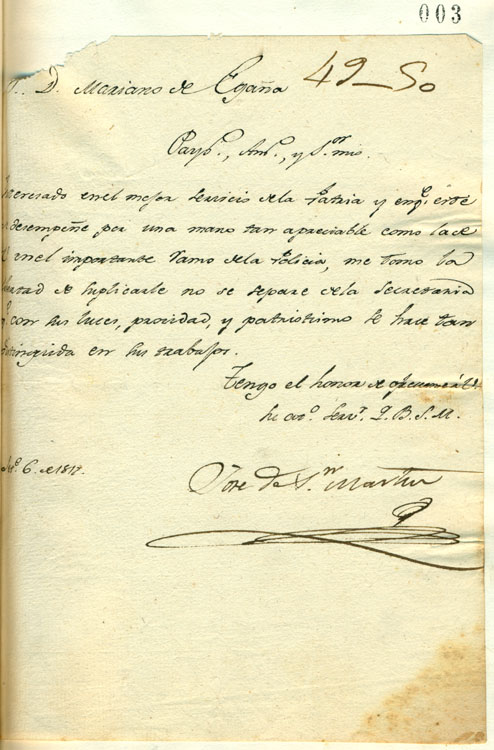 003
D. Mariano de Egaña 49-50
Payo., Amo., y Sor. mio.
Interesado en el mejor servicio de la Patria y en qe. este
se desempeñe por una mano tan apreciable como la de
en el importante ramo de la Policia, me tomo la
libertad de suplicarle no se separe de la Secretaria
qe. con sus luces, providad, y patriotismo se hace tan
distinguida en sus trabajos.
Tengo el honor de
su servr. Q. B. S. M.
6. de 1817.
Jose de Sn. Martin